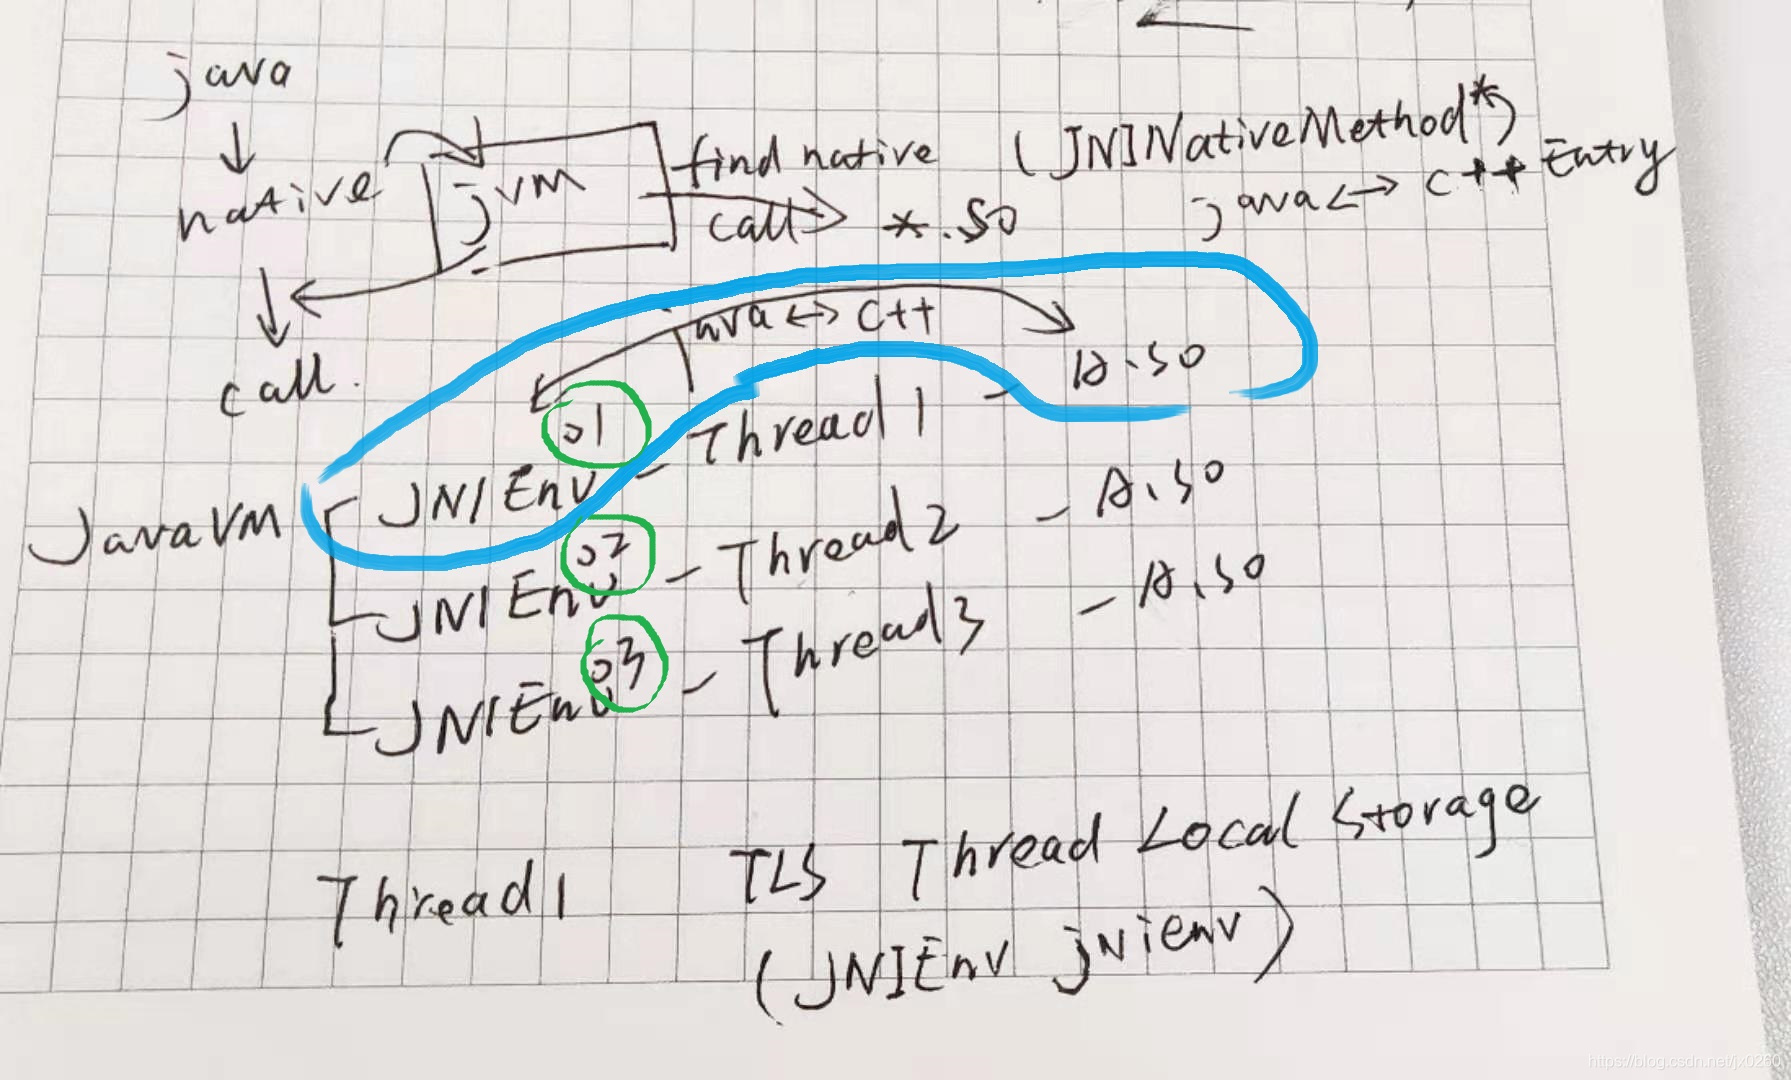 java
native
jvm
find native
call
*.so
(JNINativeMethod*)
java <-> C++ Entry
call.
java <-> C++
A.so
01
JavaVM
JNIEnv - Thread1 - 
02
JNIEnv - Thread2 - A.so
03
JNIEnv - Thread3 - A.so
Thread1
TLS Thread Local Storage
(JNIEnv jnienv)
https://blog.csdn.net/jx0260